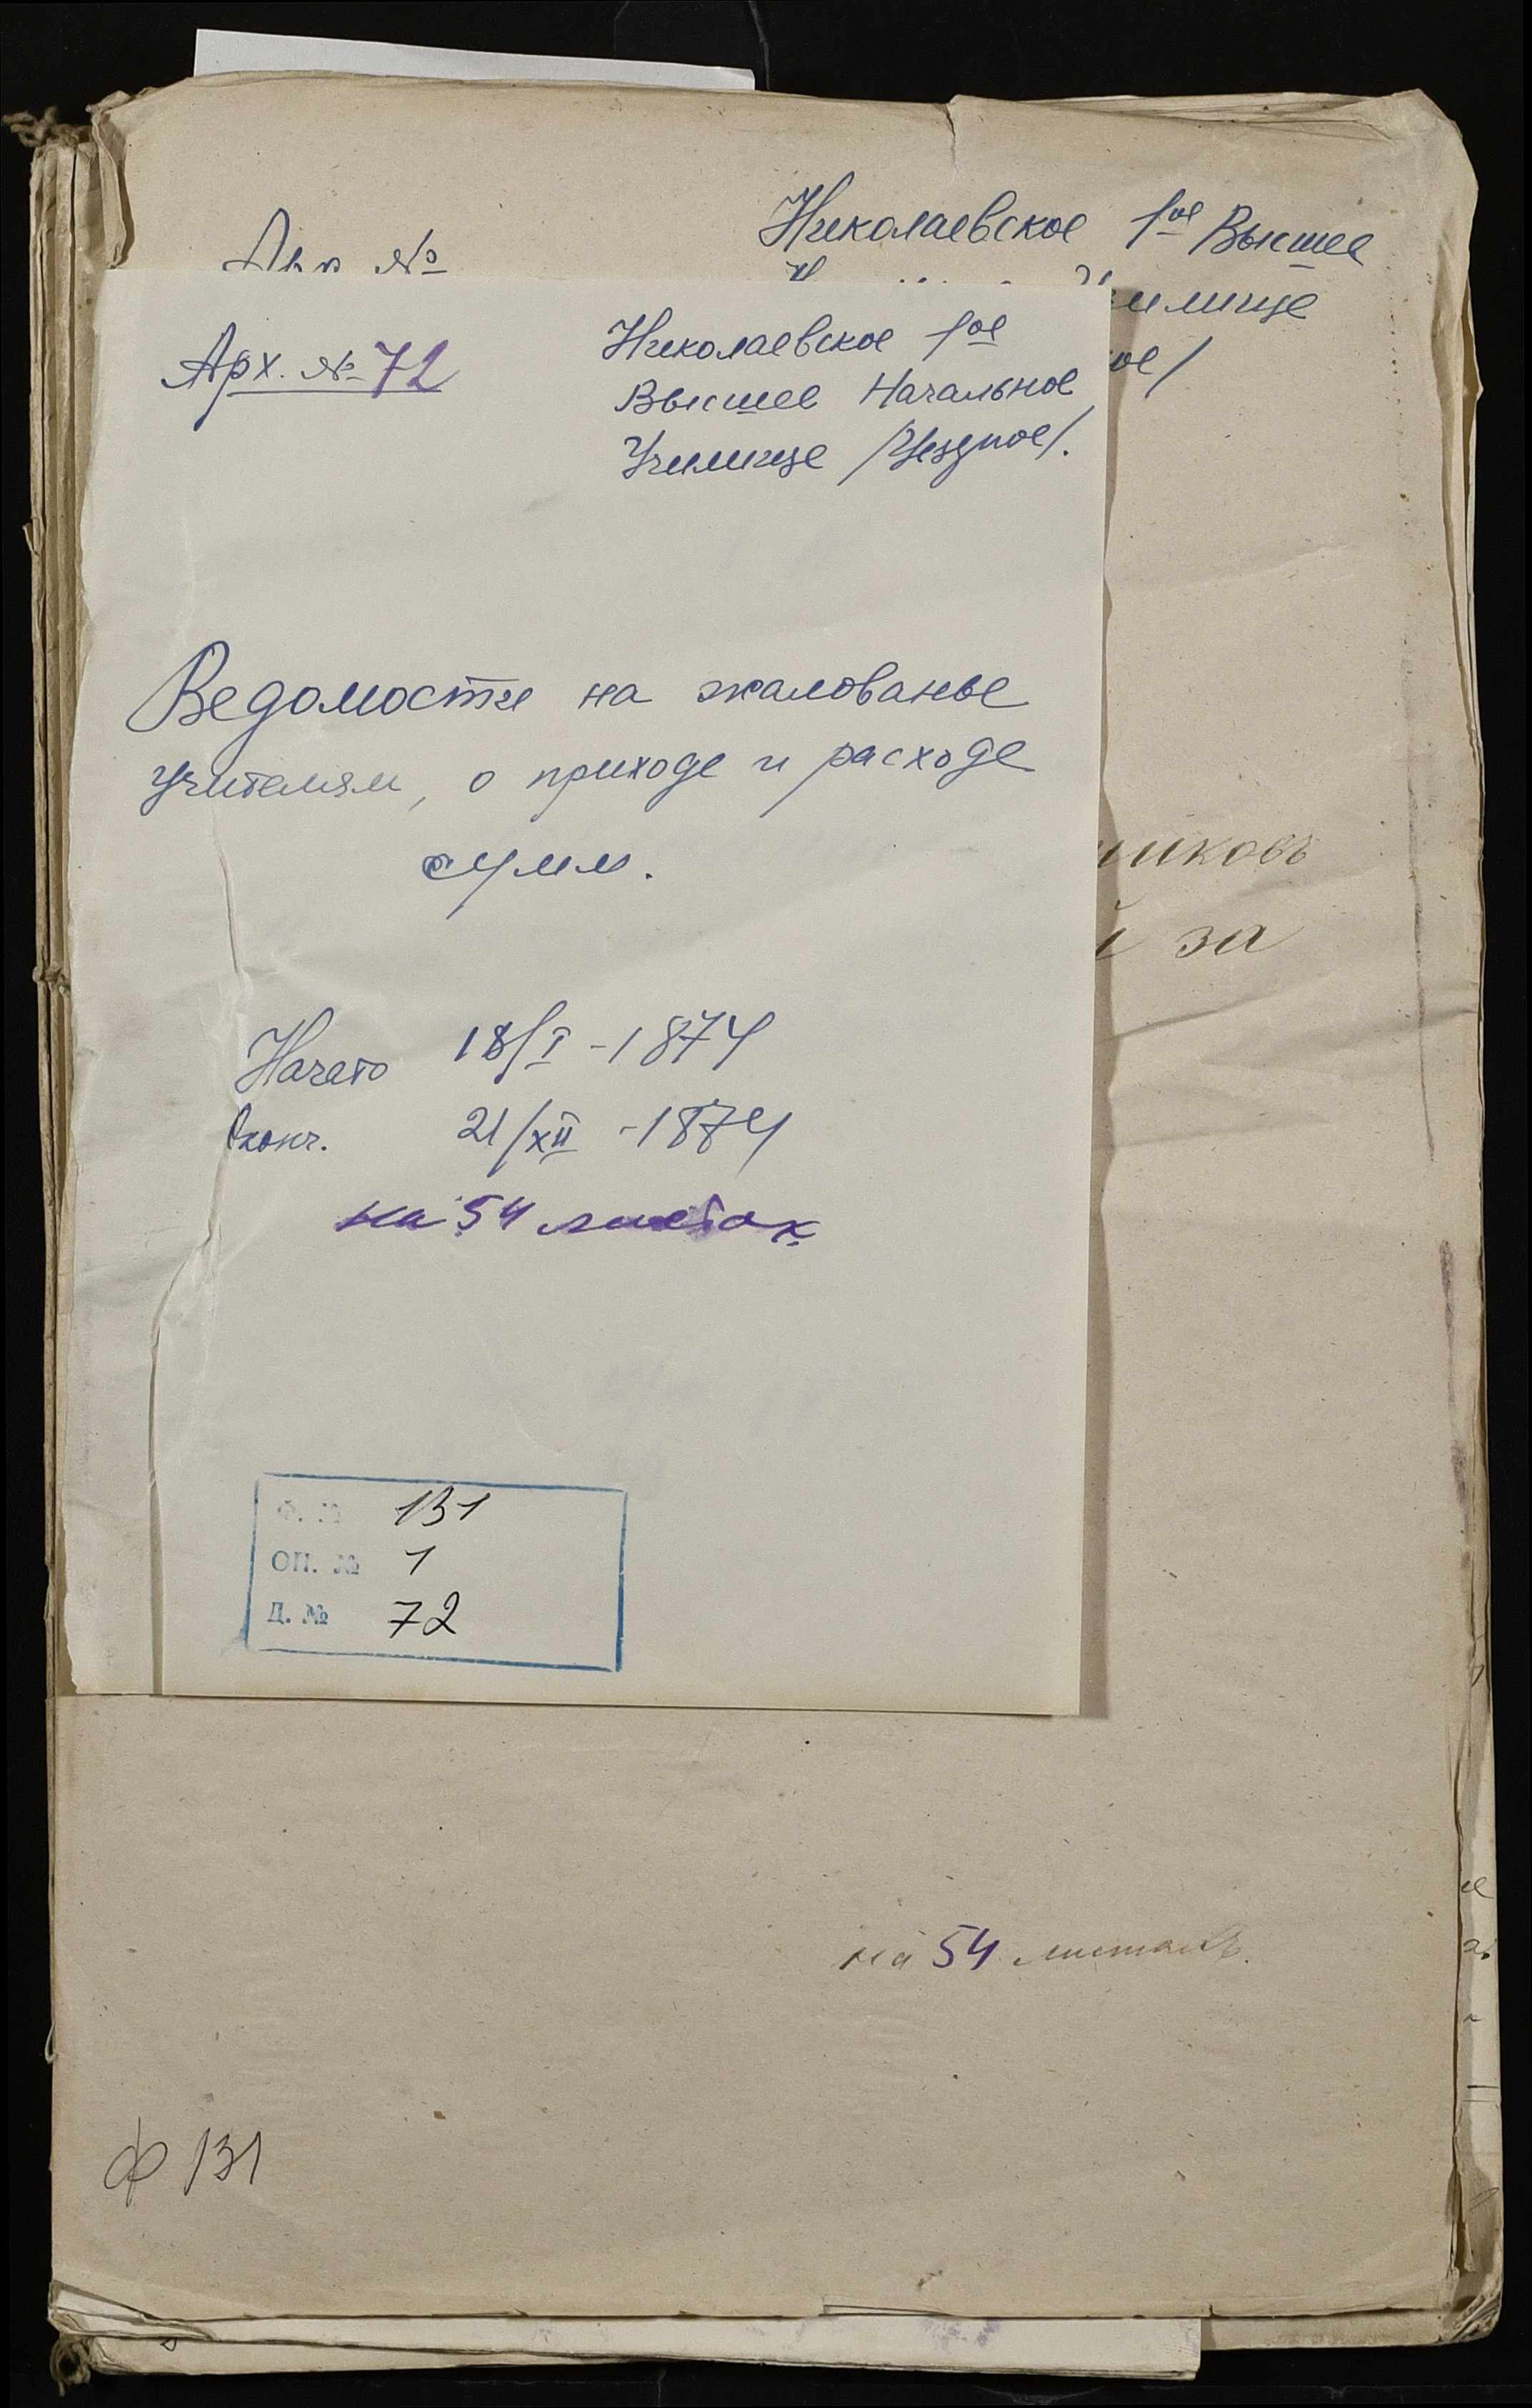 Николаевское 1ое Высшее
Арх №
илище
ое/
Арх. № 72
Николаевское 1ое
Высшее Начальное
Училище /Уездное/.
Ведомости на жалованье
учителям, о приходе и расходе
сумм.
иковъ
й за
Начато 18/I - 1874
Оконч. 21/XII - 1874
на 54 листах
Ф. № 131
ОП. № 1
Д. № 72
на 54 листахъ.
ф 131